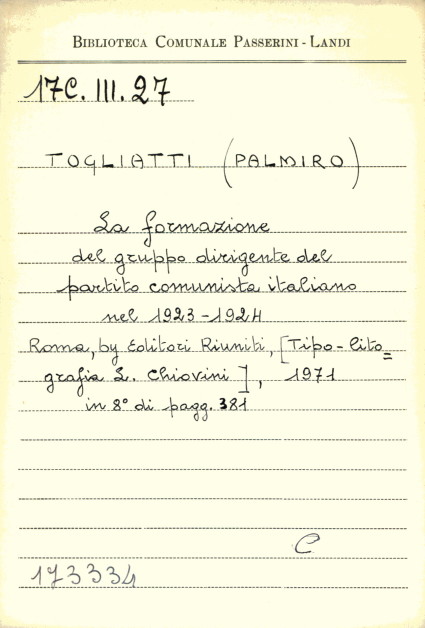 BIBLIOTECA COMUNALE PASSERINI-LANDI
17C. III. 27
TOGLIATTI (PALMIRO)
La formazione
del gruppo dirigente del
partito comunista italiano
nel 1923-1924
Roma, by Editori Riuniti, [Tipo-lito=
grafia L. Chiovini], 1971
in 8° di pagg. 381
C
173334